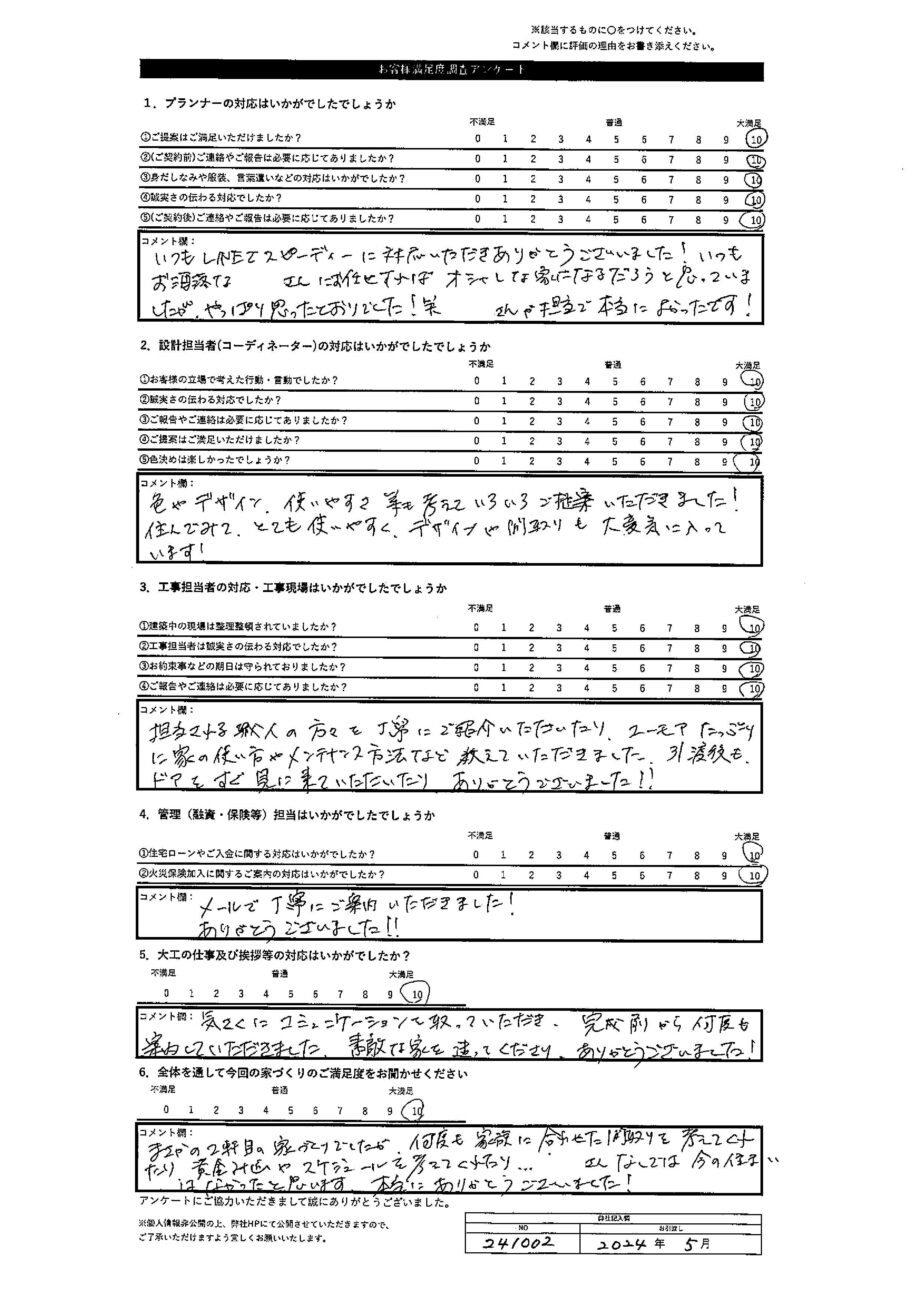 ※該当するものに〇をつけてください。
コメント欄に評価の理由をお書き添えください。
お客様満足度調査アンケート
1．プランナーの対応はいかがでしたでしょうか
不満足 普通 大満足
①ご提案はご満足いただけましたか？ 0 1 2 3 4 5 6 7 8 9 10
②(ご契約前)ご連絡やご報告は必要に応じてありましたか？ 0 1 2 3 4 5 6 7 8 9 10
③身だしなみや服装、言葉遣いなどの対応はいかがでしたか？ 0 1 2 3 4 5 6 7 8 9 10
④誠実さの伝わる対応でしたか？ 0 1 2 3 4 5 6 7 8 9 10
⑤(ご契約後)ご連絡やご報告は必要に応じてありましたか？ 0 1 2 3 4 5 6 7 8 9 10
コメント欄：
いつもLINEでスピーディーに対応いただきありがとうございました！いつも
お洒落な さんにお任せすれば オシャレな家になるだろうと思っていま
したが、やっぱり思ったとおりでした！笑 さんが担当で本当によかったです！
2．設計担当者(コーディネーター)の対応はいかがでしたでしょうか
不満足 普通 大満足
①お客様の立場で考えた行動・言動でしたか？ 0 1 2 3 4 5 6 7 8 9 10
②誠実さの伝わる対応でしたか？ 0 1 2 3 4 5 6 7 8 9 10
③ご報告やご連絡は必要に応じてありましたか？ 0 1 2 3 4 5 6 7 8 9 10
④ご提案はご満足いただけましたか？ 0 1 2 3 4 5 6 7 8 9 10
⑤色決めは楽しかったでしょうか？ 0 1 2 3 4 5 6 7 8 9 10
コメント欄：
色やデザイン、使いやすさ 等も考えて いろいろ ご提案 いただきました！
住んでみて、とても使いやすく、デザインや間取りも 大変気に入って
います！
3．工事担当者の対応・工事現場はいかがでしたでしょうか
不満足 普通 大満足
①建築中の現場は整理整頓されていましたか？ 0 1 2 3 4 5 6 7 8 9 10
②工事担当者は誠実さの伝わる対応でしたか？ 0 1 2 3 4 5 6 7 8 9 10
③お約束事などの期日は守られておりましたか？ 0 1 2 3 4 5 6 7 8 9 10
④ご報告やご連絡は必要に応じてありましたか？ 0 1 2 3 4 5 6 7 8 9 10
コメント欄：
担当される職人の方々を丁寧にご紹介いただいたり、ユーモアたっぷり
に家の使い方やメンテナンス方法など 教えていただきました。引渡後も、
ドアをすぐ見に来ていただいたり ありがとうございました!!
4．管理（融資・保険等）担当はいかがでしたでしょうか
不満足 普通 大満足
①住宅ローンやご入金に関する対応はいかがでしたか？ 0 1 2 3 4 5 6 7 8 9 10
②火災保険加入に関するご案内の対応はいかがでしたか？ 0 1 2 3 4 5 6 7 8 9 10
コメント欄：
メールで丁寧にご案内いただきました！
ありがとうございました!!
5．大工の仕事及び挨拶等の対応はいかがでしたか？
不満足 普通 大満足
0 1 2 3 4 5 6 7 8 9 10
コメント欄： 気さくにコミュニケーションを取っていただき、完成前から何度も
案内していただきました。素敵な家を造ってくださり、ありがとうございました！
6．全体を通して今回の家づくりのご満足度をお聞かせください
不満足 普通 大満足
0 1 2 3 4 5 6 7 8 9 10
コメント欄：
まさかの2軒目の家づくりでしたが、何度も家族に合わせた間取りを考えてくれ
たり 資金み込やスケジュールを考えてくれたり… さんなしでは今の住まい
はなかったと思います。本当にありがとうございました！
アンケートにご協力いただきまして誠にありがとうございました。
※個人情報非公開の上、弊社HPにて公開させていただきますので、
ご了承いただけますよう宜しくお願いいたします。
自社記入欄
NO お引渡し
241002 2024年 5月